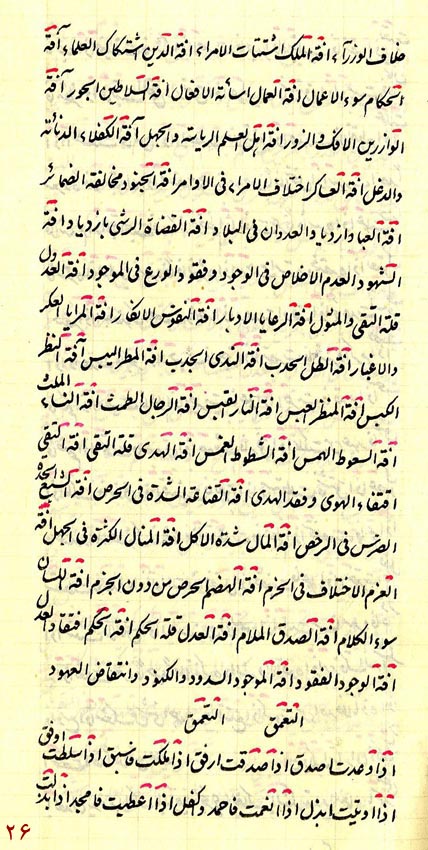 خلاف الوزرآء افة الملك اشتتات الامراء افة الدين اشتكاك العلماء آفة
الحكام سوء الاعمال افة العمال اسائة الافعال افة السلاطين الجور آفة
الوازرين الافك و الزور افة اهل العلم الرياسة و الجهل آفة الكفلاء الدنائة
و الدغل افة العساكر اختلاف الامراء فى الاوامر افة الجنود مخالفة الضمائر
افة العبا و ازدياد العدوان فى البلاد افة القضاة الرشى بازدياد و افة
الشهود العدم الاخلاص فى الوجود و فقود الورع فى الموجود افة العدول
قلة التقى و المثول افة الرعايا الادبار افة النفوس الانكار افة المرايا العكر
و الاغبار افة الطل الجدب افة الندى الجدب افة المطر اليبس آفة النظر
الكبس افة المنظر العبس افة النار القبس افة الرجال الطمث افة النساء الملث
افة السعوط الهمس افة الشطوط الغمس افة الهدى قلة التقى افة التقى
اقتفاء الهوى و فقد الهدى افة القناعة الشدة فى الحرص افة الشبع الحدة
الضرس فى الرخص افة المال شدة الاكل افة المنال الكثرة فى الجهل افة
العزم الاختلاف فى الحزم افة الهضم الحرص من دون الجزم افة اللسان
سوء الكلام افة الصدق الملام افة العدل قلة الحكم افة الحكم افتقاد العدل
افة الوجود الفقود افة الموجود السدود و الكنود و انتقاض العهود
التعمق التعمق
اذا وعدت اصدق اذا صدقت ارفق اذا ملكت فاسبق اذا سلطت اوفق
اذا اوتيت ابذل اذا انعمت فاحمد و اكفل اذا اعطيت فامجد اذا بذلت
۲۶